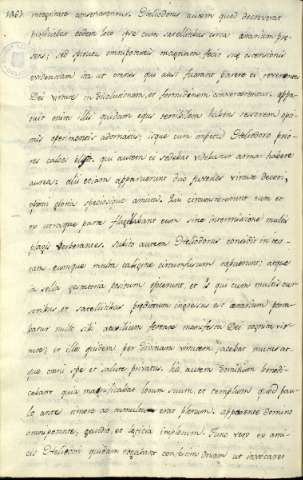 integritate conservarentur. Heliodorus autem quod decreverat
perficiebat eodem loco ipse cum satellitibus circa ærarium præ-
sens; sed spiritus omnipotentis magnam fecit suæ ostensionis
evidentiam, ita ut omnes qui ausi fuerant parere ei ruentes
Dei virtute in dissolutionem, et formidinem converterentur. appa-
ruit enim illis quidam equus terribilem habens sessorem, opti-
mis operimentis adornatus; isque cum impetu Heliodoro prio-
res calces elisit. qui autem ei sedebat videbatur arma habere
aurea; alii etiam apparuerunt duo juvenes virtute decori,
optimi gloria speciosique amictu. Qui circumsteterunt eum et
ex utraque parte flagellabant eum sine intermissione multis
plagis verberantes. Subito autem Heliodorus concidit in ter-
ram eumque multa caligine circumfusum rapuerunt; atque
in sella gestatoria positum ejecerunt, et is qui cum multis cur-
soribus et satellitibus prædictum ingressus est ærarium porta-
batur nullo sibi auxilium ferente manifesta Dei cognita vir-
tute; et ille quidem per divinam virtutem jacebat mutus at-
que omni spe et salute privatus. hi autem Dominum benedi-
cebant quia magnificabat locum suum, et templum quod pau-
lo ante timore ac tumultu erat plenum, apparente Domino
omnipotente, gaudio, et lætitia impletum. Tunc vero ex ami-
cis Heliodori quidam rogabant confestim Oniam ut invocaret